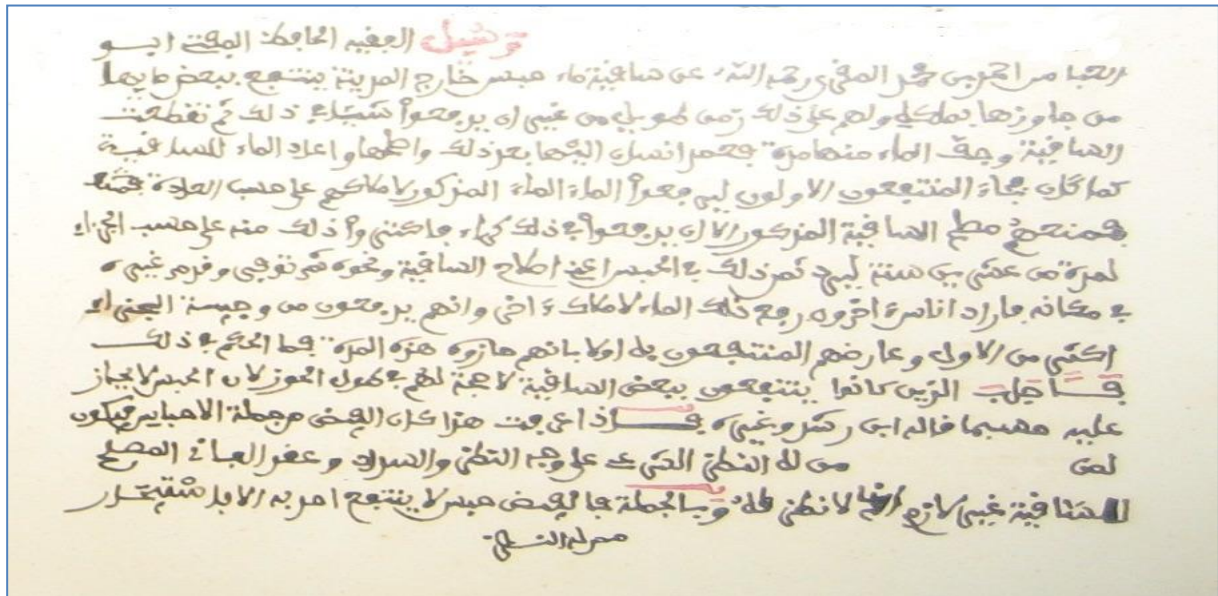 وسئل الفقيه الحافظ المفتي ابو
العباس احمد بن محمد المقري رحمه الله عن ساقية ماء حبس خارج المدينة ينتفع ببعض مايها
من جاورها بملكه ولهم على ذلك زمن طويل من غير ان يدفعوا شيئا في ذلك ثم تقطعت
الساقية وجف الماء منها مدة فعمد انسان اليها بعد ذلك واصلحها واعاد الماء للساقية
كما كان فجاء المنتفعون الاولون ليرجعوا الماء الماء المذكور لاماكنهم على حسب العادة فمنعـ
فمنعهم مصلح الساقية المذكور الا ان يدفعوا في ذلك كراء فاكتروا ذلك منه على حسب الجزاء
لمدة من عشرين سنة ثمن ذلك في الحبس اعني اصلاح الساقية ونحوه ثم توفي وقدم غيره
في مكانه فاراد اناس ءاخرون رفع ذلك الماء لاماكن ءاخر وانهم يدفعون من وجيبة
اكثر من الاول وعارضهم المنتفعون به اولا بانهم حازوه هذه المدة فما الحكم في ذلك
فاجاب الذين كانوا ينتفعون ببعض الساقية لا حجة لهم في طول الحوز لان الحبس لا يحاز
عليه حسبما قاله ابن رشد وغيره فاذا عرفت هذا كان الفيض من جملة الاحباس فيكون
لمن من له النظر الشرعي على وجه النظر والسداد وعقد المصلح
للساقية غير لازم لانه لا نظر له وبالجملة فالفيض حبس لا ينتفع احد به الا باستيجار
ممن له النظر